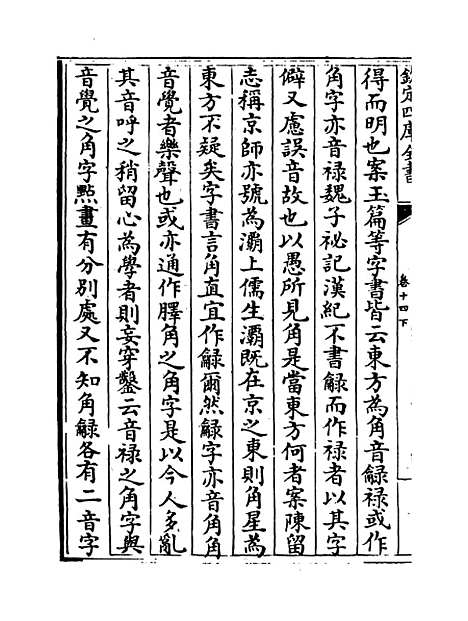 欽定四庫全書
卷十四下
得而明也案玉篇等字書皆云東方為角音觮禄或作
角字亦音禄魏子祕記漢紀不書觮而作禄者以其字
僻又慮誤音故也以愚所見角是當東方何者案陳留
志稱京師亦號為灞上儒生灞既在京之東則角星為
東方不疑矣字書言角直宜作觮爾然觮字亦音角角
音覺者樂聲也或亦通作䏰角之角字是以今人多亂
其音呼之稍留心為學者則妄穿鑿云音禄之角字與
音覺之角字點畫有分別處又不知角觮各有二音字